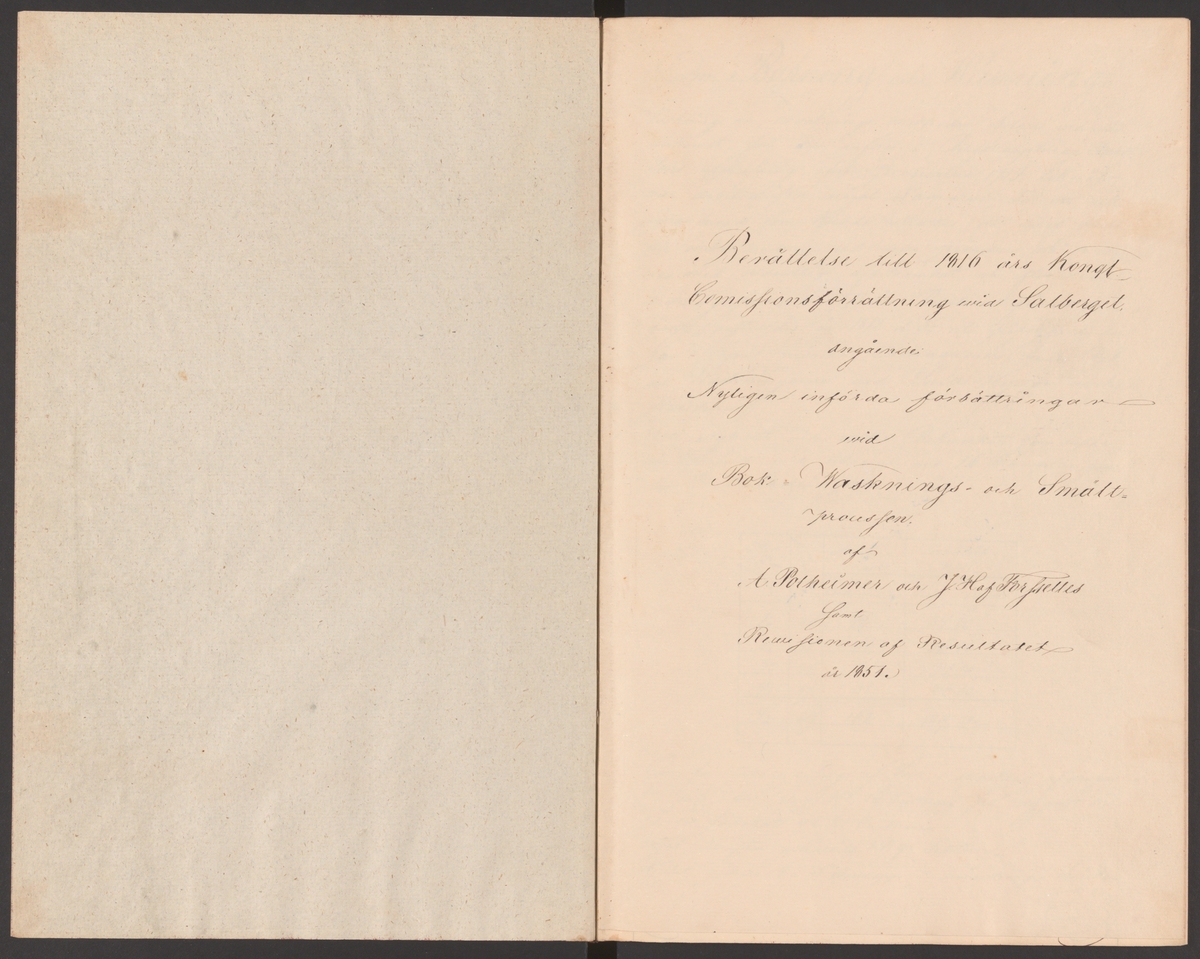 Berättelse till 1816 års Kongl
Comissionsförrättning wid Salberget.
angående
Nyligen införda förbättringar
wid
Bok- Wasknings- och Smält-
processen.
af
A Polheimer och J H af Forsselles
samt
Revisionen af Resultatet
år 1851.